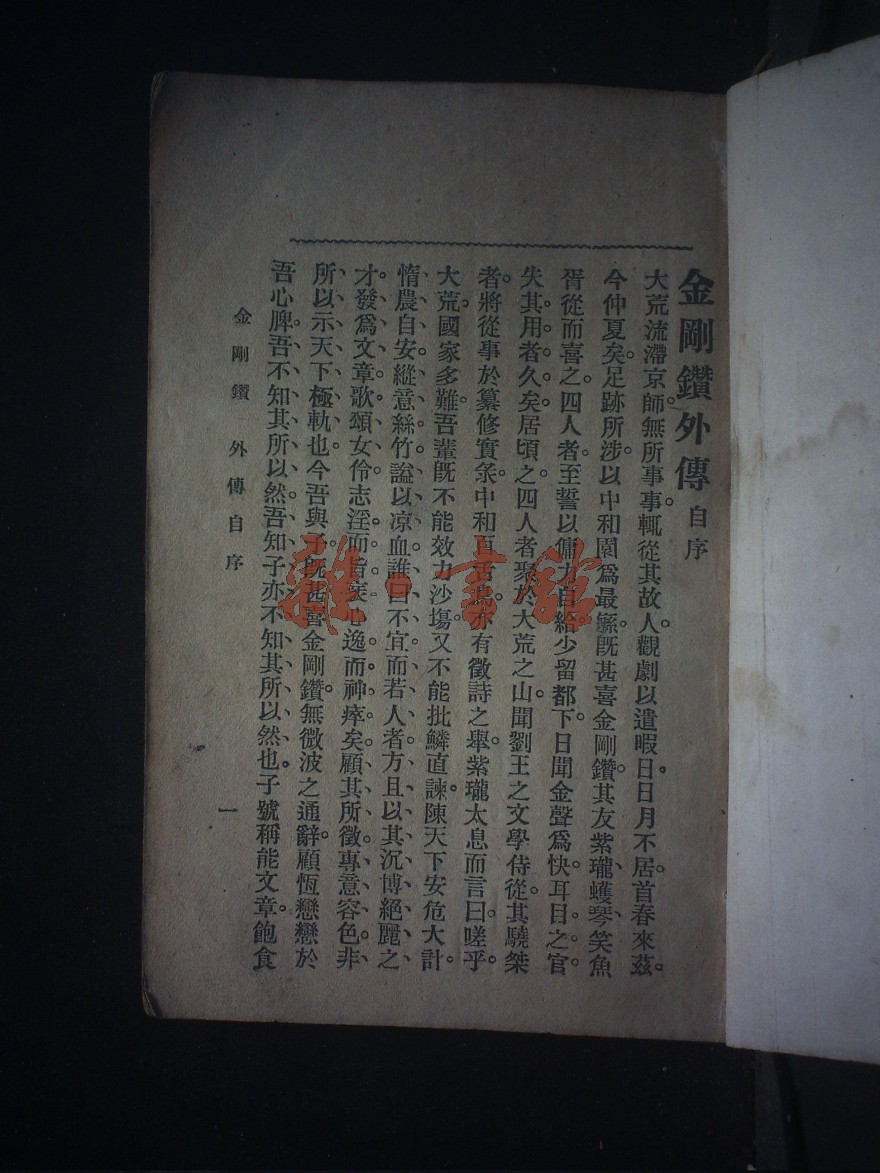 金剛鑽外傳 自序
大荒流滯京師無所事事。輒從其故人觀劇以遣暇日。日月不居。首春來茲。
今仲夏矣。足跡所涉。以中和園爲最。緜旣甚喜金剛鑽。其友紫瓏、蠖琴、笑魚
胥從而喜之。四人者。至誓以傭力自給少留都下。日聞金聲爲快。耳目之官。
失其用者久矣。居頃之四人者聚於大荒之山。聞劉王之文學侍從。其驍桀
者。將從事於纂修實条。中和亦有徵詩之舉。紫瓏太息而言曰。嗟乎
大荒。國家多難。吾輩旣不能效力沙場。又不能批鱗直諫。陳天下安危大計。
惰農自安。縱意絲竹。謚以凉血。誰曰不宜。而若人者。方且以其沉博絕麗之
才。發爲文章。歌頌女伶。志淫而心逸而神瘁矣。顧其所徵。專意容色。非
所以示天下極軌也。今吾與子旣甚喜金剛鑽。無微波之通辭。顧恆戀戀於
吾心脾。吾不知其所以然。吾知子亦不知其所以然也。子號稱能文章。飽食
金剛鑽 外傳自序
一
雜·書館